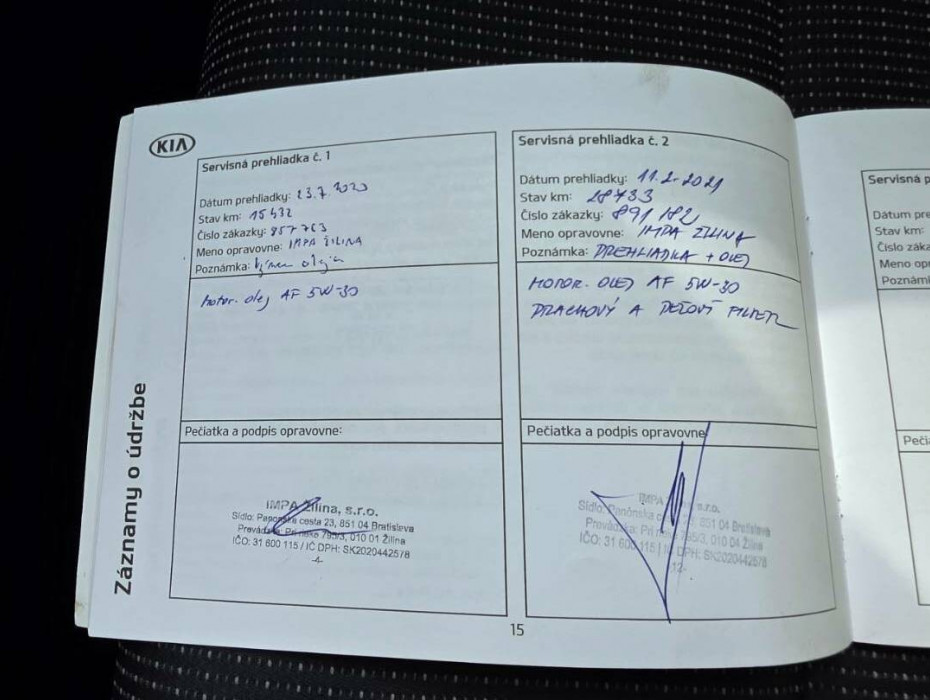 KIA
Servisná prehliadka č. 1
Dátum prehliadky: 23.7.2020
Stav km: 15432
Číslo zákazky: 857763
Meno opravovne: IMPA ŽILINA
Poznámka:
motor. olej AF 5W-30
Pečiatka a podpis opravovne:
IMPA Žilina, s.r.o.
Sídlo: Panónska cesta 23, 851 04 Bratislava
Prevádzka: Pri rieke 795/3, 010 01 Žilina
IČO: 31 600 115 / IČ DPH: SK2020442578
-1-
Servisná prehliadka č. 2
Dátum prehliadky: 11.2.2021
Stav km: 28733
Číslo zákazky: 891182
Meno opravovne: IMPA ŽILINA
Poznámka: PREHLIADKA + OLEJ
MOTOR. OLEJ AF 5W-30
PRACHOVÝ A PEĽOVÝ FILTER
Pečiatka a podpis opravovne
IMPA s.r.o.
Sídlo: Panónska cesta 851 04 Bratislava
Prevádzka: Pri rieke 795/3, 010 01 Žilina
IČO: 31 600 115 / IČ DPH: SK2020442578
12
Záznamy o údržbe
15
Servisná p
Dátum pre
Stav km:
Číslo záka
Meno op
Poznámk
Peči